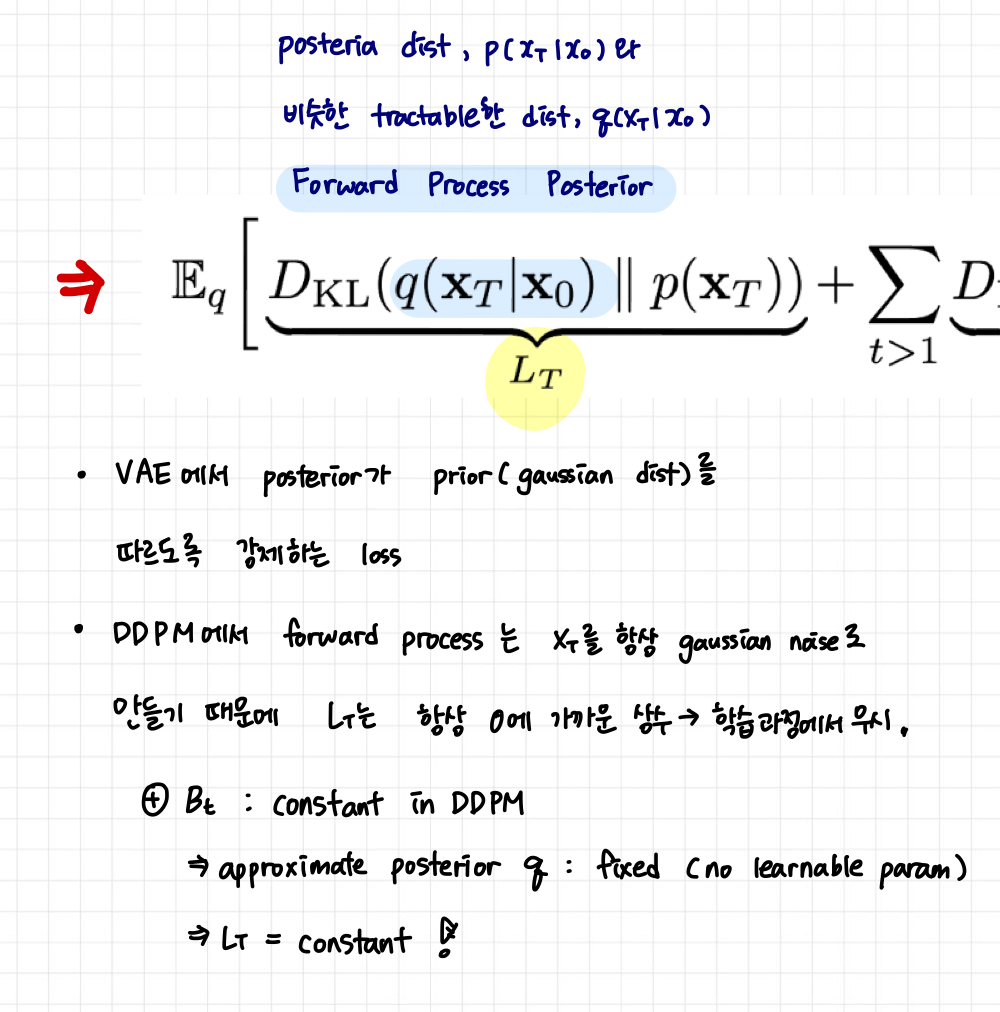 posteria dist, p(x_T|x_0)와
비슷한 tractable한 dist, q(x_T|x_0)
Forward Process Posterior
⇒ 𝔼_q [ D_KL(q(𝐱_T|𝐱_0) ∥ p(𝐱_T)) + ∑ D
L_T t>1
• VAE에서 posterior가 prior(gaussian dist)를
따르도록 강제하는 loss
• DDPM에서 forward process는 x_T를 항상 gaussian noise로
만들기 때문에 L_T는 항상 0에 가까운 상수 → 학습과정에서 무시.
⊕ B_t : constant in DDPM
⇒ approximate posterior q : fixed (no learnable param)
⇒ L_T = constant !